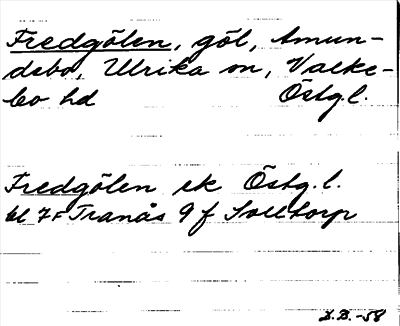 Fredgölen, göl, Amun-
debo, Ulrika sn, Valke-
bo hd Östg.l.
Fredgölen ek Östg.l.
bl 7F Tranås 9 f Solltorp
D.B.-58